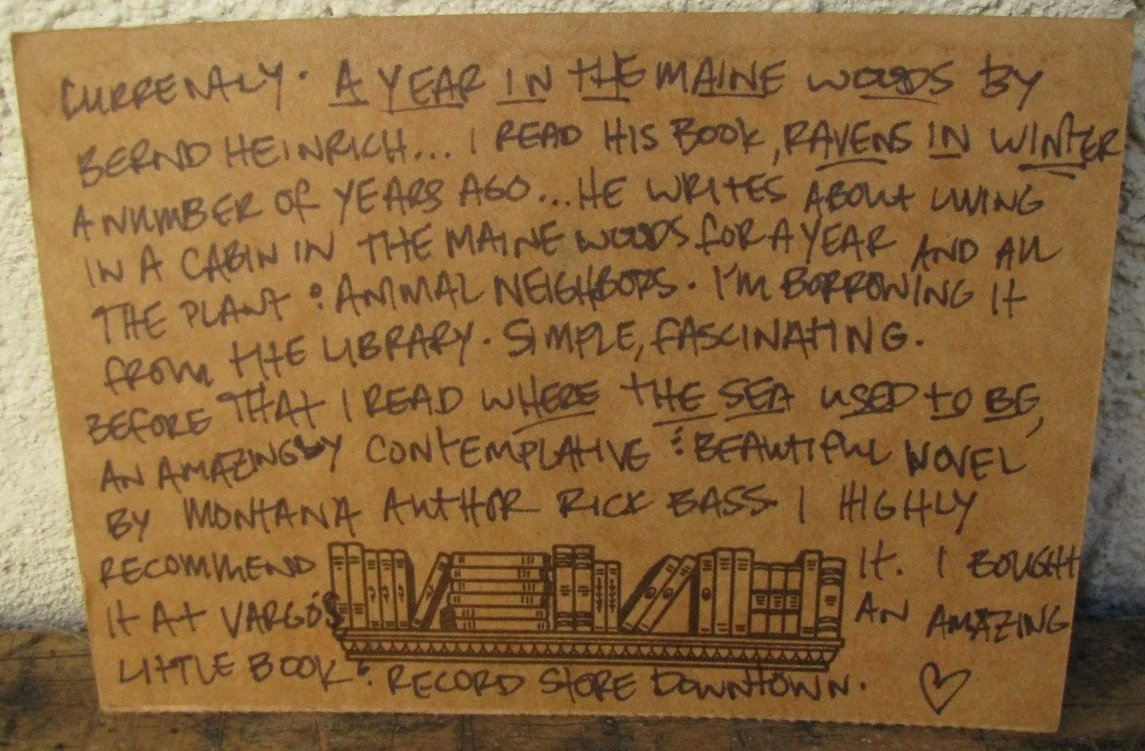 CURRENTLY. A YEAR IN THE MAINE WOODS BY
BERND HEINRICH... I READ HIS BOOK, RAVENS IN WINTER
A NUMBER OF YEARS AGO... HE WRITES ABOUT LIVING
IN A CABIN IN THE MAINE WOODS FOR A YEAR AND ALL
THE PLANT & ANIMAL NEIGHBORS. I'M BORROWING IT
FROM THE LIBRARY. SIMPLE, FASCINATING.
BEFORE THAT I READ WHERE THE SEA USED TO BE,
AN AMAZINGLY CONTEMPLATIVE & BEAUTIFUL NOVEL
BY MONTANA AUTHOR RICK BASS I HIGHLY
RECOMMEND IT. I BOUGHT
IT AT VARGO'S AN AMAZING
LITTLE BOOK & RECORD STORE DOWNTOWN.